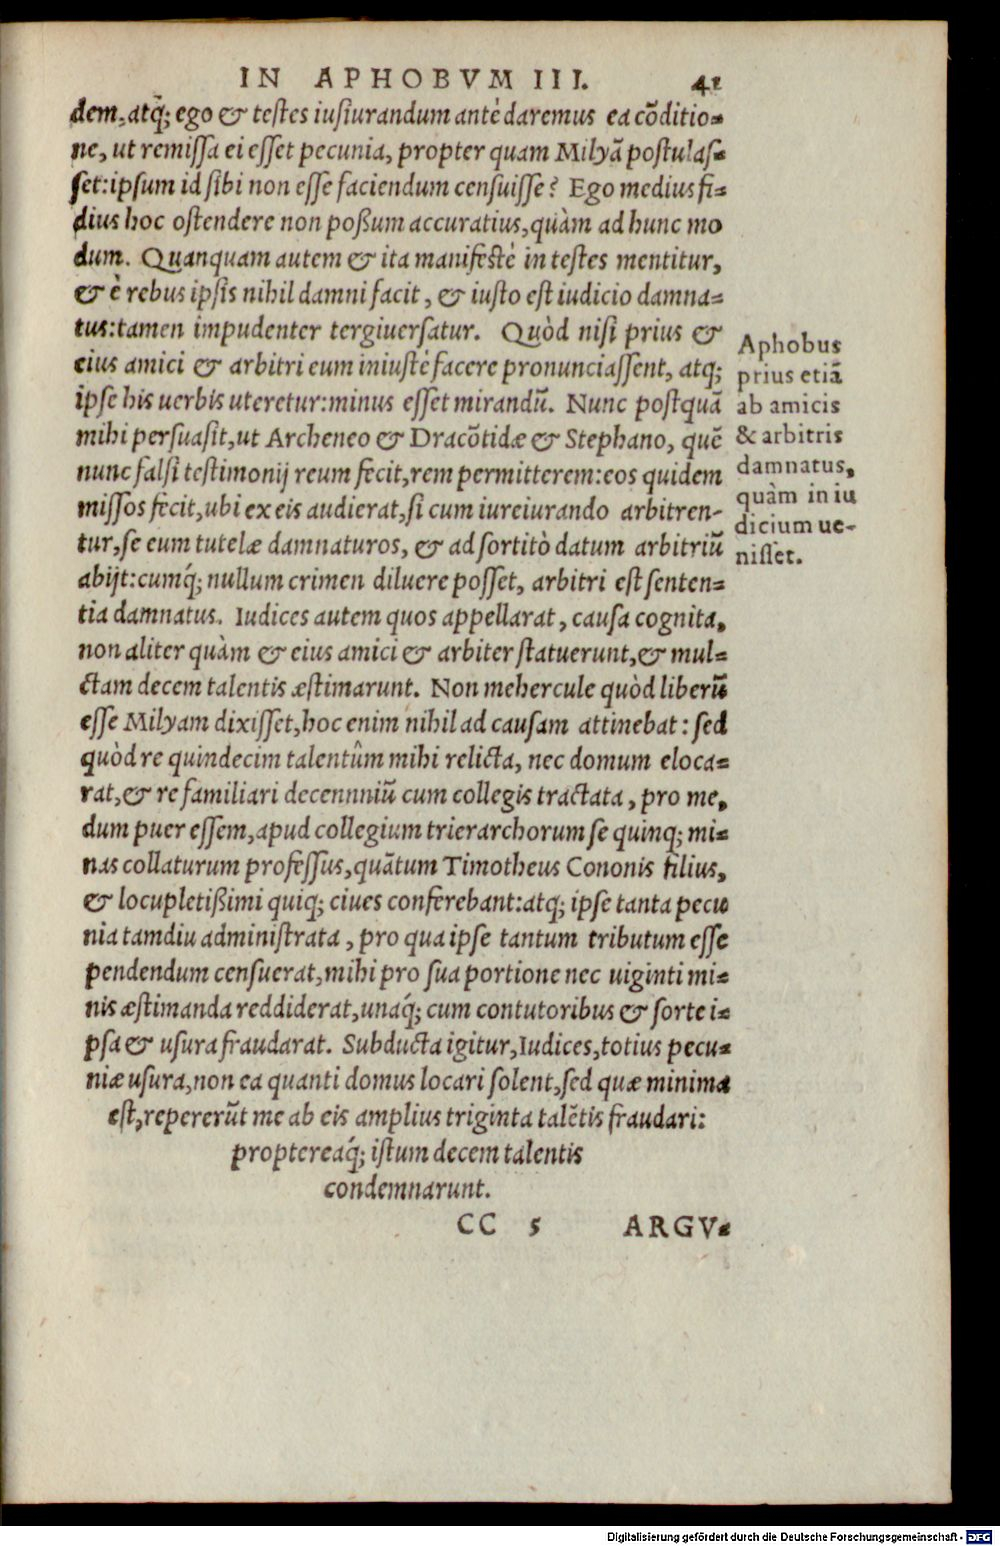 IN APHOBVM III. 41
dem, atq́; ego & testes iusiurandum antè daremus ea cōditio-
ne, ut remissa ei esset pecunia, propter quam Milyā postulas-
set: ipsum id sibi non esse faciendum censuisse? Ego medius fi-
dius hoc ostendere non poßum accuratius, quàm ad hunc mo
dum. Quanquam autem & ita manifestè in testes mentitur,
& è rebus ipsis nihil damni facit, & iusto est iudicio damna-
tus: tamen impudenter tergiuersatur. Quòd nisi prius &
eius amici & arbitri eum iniustè facere pronunciassent, atq;
ipse his uerbis uteretur: minus esset mirandū. Nunc postquā
mihi persuasit, ut Archeneo & Dracōtidæ & Stephano, quē
nunc falsi testimonij reum fecit, rem permitterem: eos quidem
missos fecit, ubi ex eis audierat, si cum iureiurando arbitren-
tur, se eum tutelæ damnaturos, & ad sortitò datum arbitriū
abijt: cumq́; nullum crimen diluere posset, arbitri est senten-
tia damnatus. Iudices autem quos appellarat, causa cognita,
non aliter quàm & eius amici & arbiter statuerunt, & mul-
ctam decem talentis æstimarunt. Non mehercule quòd liberū
esse Milyam dixisset, hoc enim nihil ad causam attinebat: sed
quòd re quindecim talentûm mihi relicta, nec domum eloca-
rat, & re familiari decennniū cum collegis tractata, pro me,
dum puer essem, apud collegium trierarchorum se quinq; mi-
nas collaturum professus, quātum Timotheus Cononis filius,
& locupletißimi quiq; ciues conferebant: atq; ipse tanta pecu
nia tamdiu administrata, pro qua ipse tantum tributum esse
pendendum censuerat, mihi pro sua portione nec uiginti mi-
nis æstimanda reddiderat, unaq́; cum contutoribus & sorte i-
psa & usura fraudarat. Subducta igitur, Iudices, totius pecu-
niæ usura, non ea quanti domus locari solent, sed quæ minima
est, repererūt me ab eis amplius triginta talētis fraudari:
proptereaq́; istum decem talentis
condemnarunt.
CC 5 ARGV-
Aphobus
prius etiā
ab amicis
& arbitris
damnatus,
quàm in iu
dicium ue-
nisset.
Digitalisierung gefördert durch die Deutsche Forschungsgemeinschaft - DFG